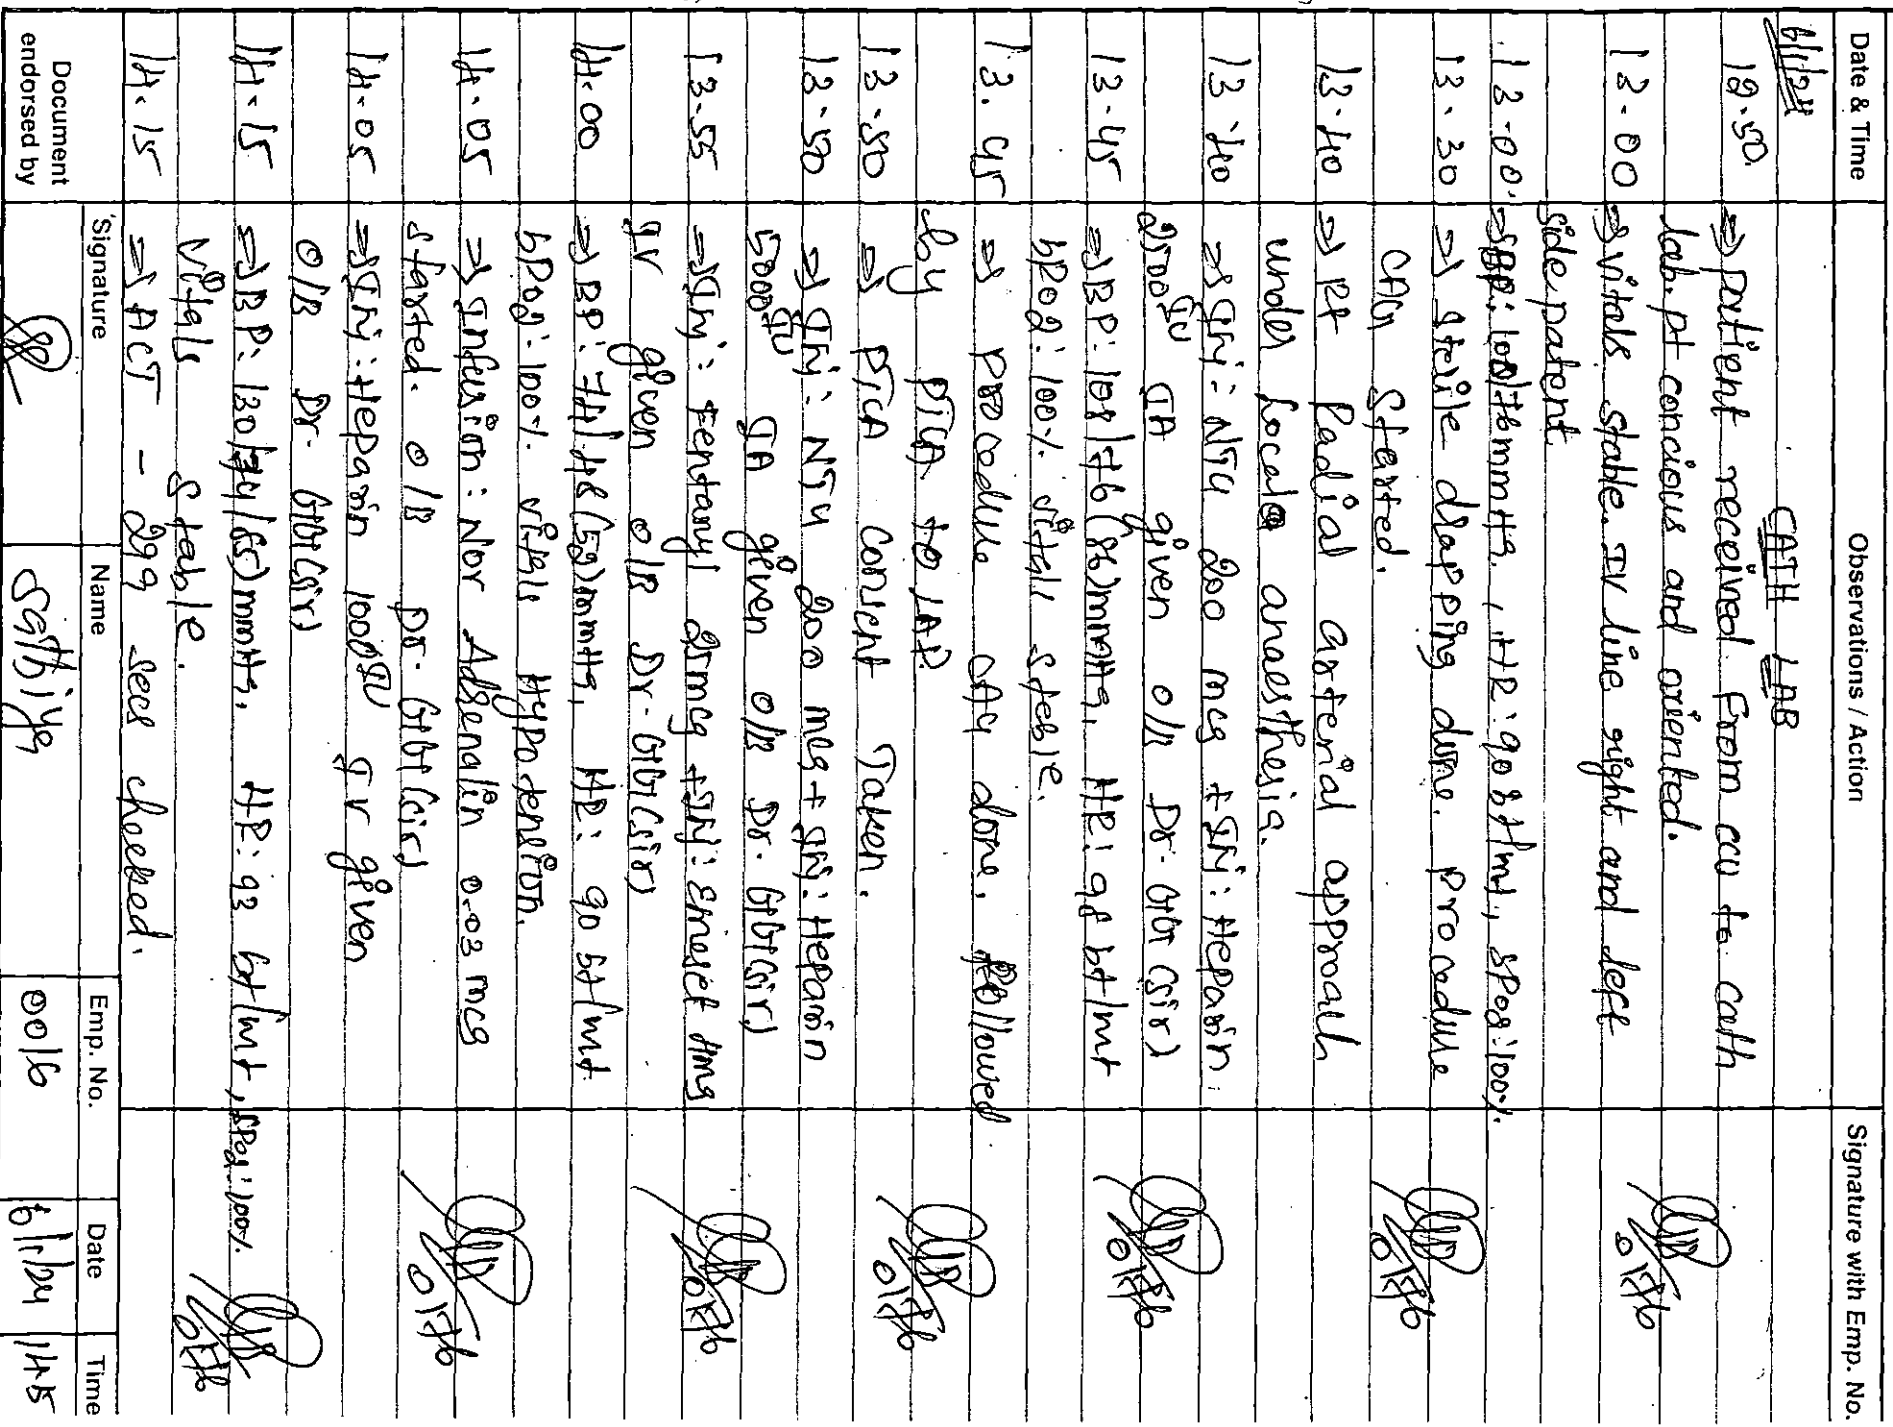 Date & Time Observations / Action Signature with Emp. No.
6/1/24 CATH LAB
12.50. ⇒ patient received From ccu to cath
lab. pt concious and oriented.
13.00 ⇒ vitals stable. IV line right and left
side patent
13.00. ⇒ BP: 100/76mmHg, HR: 90 bt/mt, SPO2:100%.
13.30 ⇒ sterile drapping done. Procedure
CAG Started.
13.40 ⇒ Rt Radial arterial approach
under Local anaesthesia.
13.40 ⇒ Inj: NTG 200 mcg + Inj: Heparin
2500IU IA given o/B Dr. (sir)
13.45 ⇒ BP: 108/76(86)mmHg, HR: 98 bt/mt
SPO2: 100% vitals stable.
13.45 ⇒ Procedure CAG done. Followed
by PTCA to LAD.
13.50 ⇒ PTCA Consent Taken.
13.50 ⇒ Inj: NTG 200 mcg + Inj: Heparin
5000IU IA given o/B Dr. (sir)
13.55 ⇒ Inj: Fentanyl 25mcg + Inj: Emeset 4mg
IV given o/B Dr. (sir)
14.00 ⇒ BP: 74/48(52)mmHg, HR: 90 bt/mt
SPO2: 100%. vitals Hypotension.
14.05 ⇒ Infusion: Nor Adrenalin 0.03 mcg
started. o/B Dr. (sir)
14.05 ⇒ Inj: Heparin 1000IU IV given
o/B Dr. (sir)
14.15 ⇒ BP: 130/74/(85)mmHg, HR: 93 bt/mt, SPO2:100%.
vitals stable.
14.15 ⇒ ACT - 299 secs checked.
Document endorsed by Signature Name Emp. No. Date Time
Sathiya 0016 6/1/24